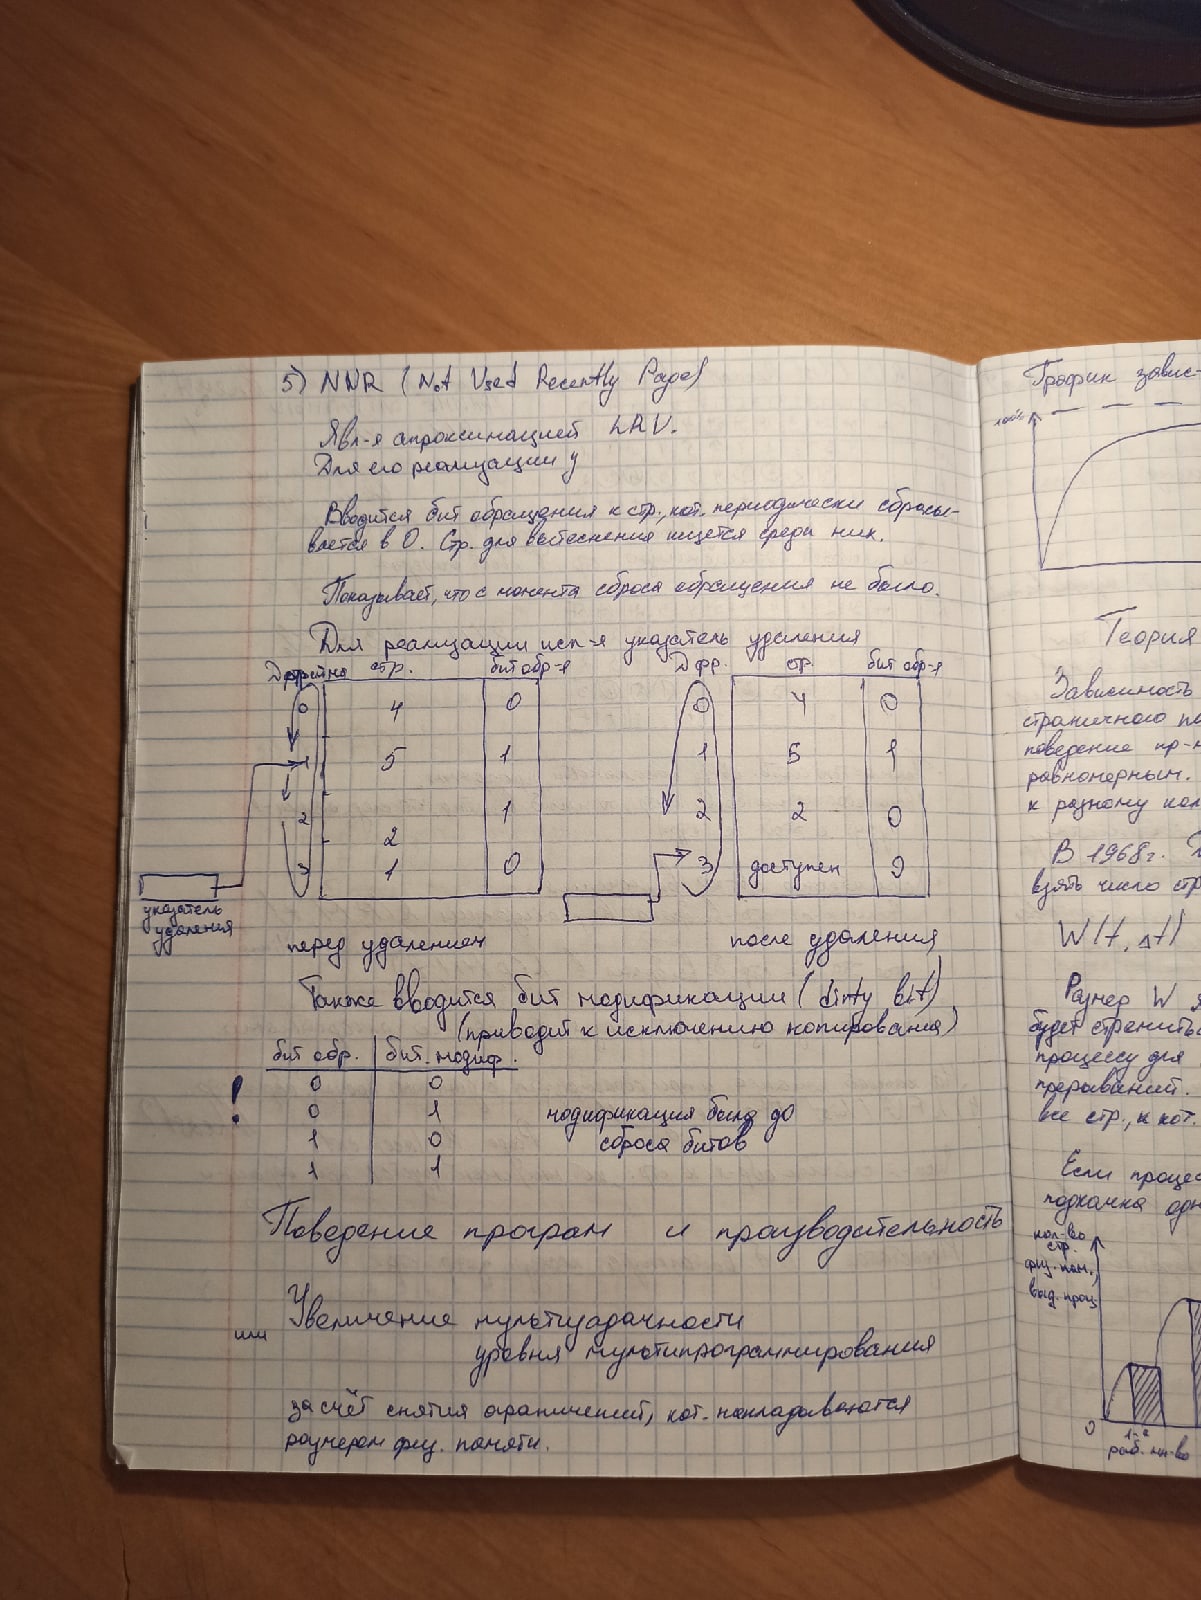 5) NNR (Not Used Recently Page)
Явл-я апроксимацией LRU.
Для его реализации у
Вводится бит обращения к стр., кот. периодически сбрасы-
вается в 0. Стр. для вытеснения ищется среди них.
Показывает, что с момента сброса обращения не было.
Для реализации исп-я указатель удаления
стр. бит обр-я
0 4 0
1 5 1
2 2 1
3 1 0
указатель
удаления
перед удалением
фр. стр бит обр-я
0 4 0
1 5 1
2 2 0
3 доступен 0
после удаления
Также вводится бит модификации (dirty bit)
(приводит к исключению копирования)
бит обр. бит. модиф.
0 0
! 0 1 модификация была до
1 0 сброса битов
1 1
Поведение програм и производительность
Увеличение мультизадачности
или уровня мультипрограммирования
за счёт снятия ограничений, кот. накладываются
размером физ. памяти.
График завис-
100%
Теория
Зависимость
страничного
поведение пр-
равномерным.
к разному кол
В 1968г.
взять число стр
W(t, Δt)
Размер W
будет стремиться
процессу для
прерываний.
все стр., к кот.
Если процес
подкачка одн
кол-во
стр.
физ. пам.,
выд. проц.
0
1-е
раб. мн-во